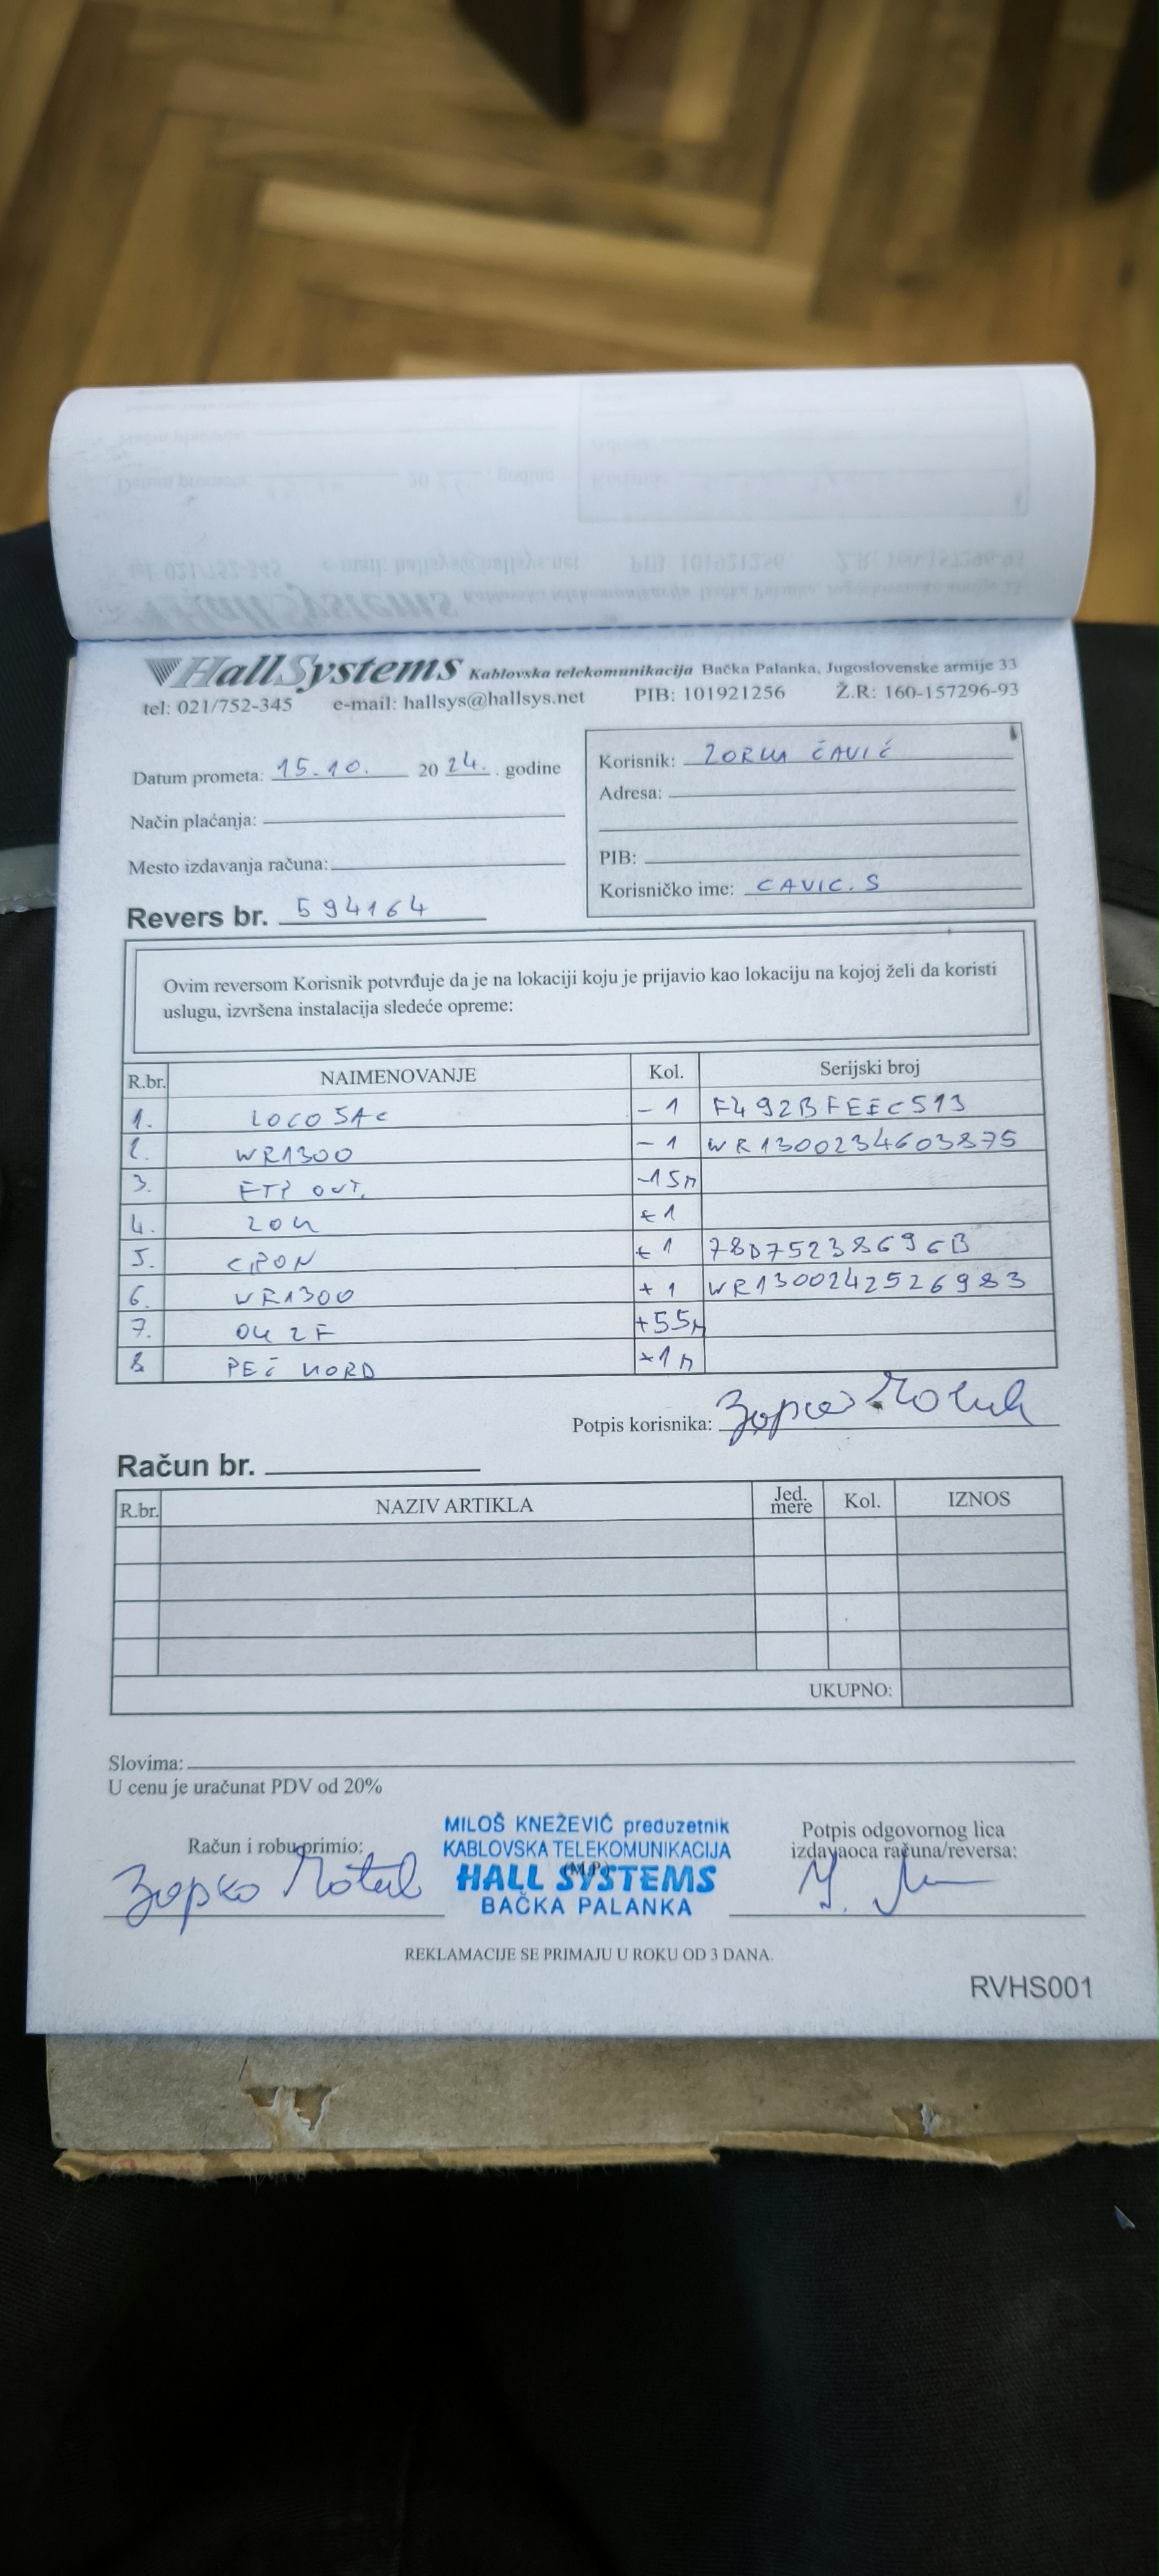 HallSystems Kablovska telekomunikacija Bačka Palanka, Jugoslovenske armije 33
tel: 021/752-345 e-mail: hallsys@hallsys.net PIB: 101921256 Ž.R: 160-157296-93
Datum prometa: 15.10. 20 24. . godine
Način plaćanja:
Mesto izdavanja računa:
Revers br. 594164
Korisnik: ČAVIĆ
Adresa:
PIB:
Korisničko ime: CAVIC.S
Ovim reversom Korisnik potvrđuje da je na lokaciji koju je prijavio kao lokaciju na kojoj želi da koristi
uslugu, izvršena instalacija sledeće opreme:
R.br. NAIMENOVANJE Kol. Serijski broj
1. LOCO 5AC - 1 F492BFEEC513
2. WR1300 - 1 WR1300234603875
3. FTP OUT. -15m
4. + 1
5. GPON + 1 78D75238696B
6. WR1300 + 1 WR1300242526983
7. OK 2F +55m
8. +1m
Potpis korisnika:
Račun br.
R.br. NAZIV ARTIKLA Jed. mere Kol. IZNOS
UKUPNO:
Slovima:
U cenu je uračunat PDV od 20%
Račun i robu primio:
Зорко
MILOŠ KNEŽEVIĆ preduzetnik
KABLOVSKA TELEKOMUNIKACIJA
(M.P.)
HALL SYSTEMS
BAČKA PALANKA
Potpis odgovornog lica
izdavaoca računa/reversa:
REKLAMACIJE SE PRIMAJU U ROKU OD 3 DANA.
RVHS001